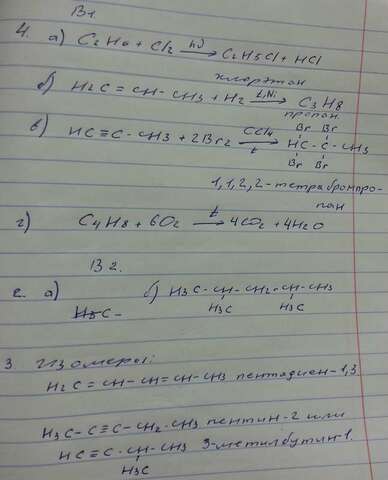 В1.
4. а) C2H6 + Cl2 —hν→ C2H5Cl + HCl
хлорэтан
б) H2C = CH - CH3 + H2 —t,Ni→ C3H8
пропан
в) HC ≡ C - CH3 + 2Br2 —CCl4, t→ HC - C - CH3
Br Br
Br Br
1,1,2,2-тетрабромпро-
пан
г) C4H8 + 6O2 —t→ 4CO2 + 4H2O
В2.
2. а) H3C -
б) H3C - CH - CH2 - CH - CH3
H3C H3C
3 Изомеры:
H2C = CH - CH = CH - CH3 пентадиен-1,3
H3C - C ≡ C - CH2 - CH3 пентин-2 или
HC ≡ C - CH - CH3 3-метилбутин-1.
H3C